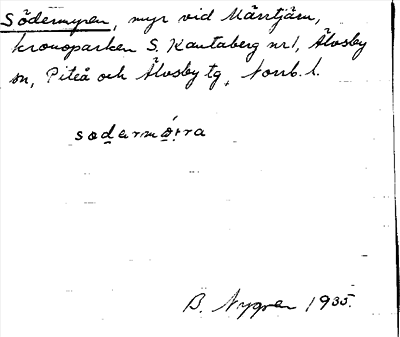 Södermyran, myr vid Märrtjärn,
kronoparken S. Kautaberg nr 1, Älvsby
sn, Piteå och Älvsby tg, Norrb. l.
B. Nygren 1935.